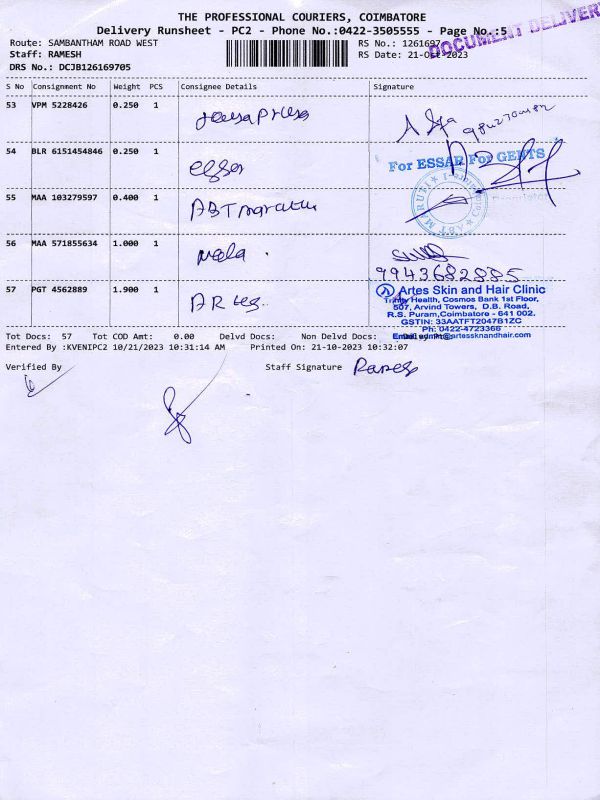 THE PROFESSIONAL COURIERS, COIMBATORE
Delivery Runsheet - PC2 - Phone No.:0422-3505555 - Page No.:5
DOCUMENT DELIVERY
Route: SAMBANTHAM ROAD WEST
RS No.: 1261697
Staff: RAMESH
RS Date: 21-Oct-2023
DRS No.: DCJB126169705
S No Consignment No Weight PCS Consignee Details Signature
53 VPM 5228426 0.250 1
54 BLR 6151454846 0.250 1
For ESSAR For GENTS
Proprietor
55 MAA 103279597 0.400 1 ABT maruthi
MARUTI
ABT
56 MAA 571855634 1.000 1 mala
9943682885
57 PGT 4562889 1.900 1
Artes Skin and Hair Clinic
Trinity Health, Cosmos Bank 1st Floor,
507, Arvind Towers, D.B. Road,
R.S. Puram, Coimbatore - 641 002.
GSTIN: 33AATFT2047B1ZC
Ph: 0422-4723366
Tot Docs: 57 Tot COD Amt: 0.00 Delvd Docs: Non Delvd Docs:
Entered By :KVENIPC2 10/21/2023 10:31:14 AM Printed On: 21-10-2023 10:32:07
Verified By
Staff Signature Ramesh